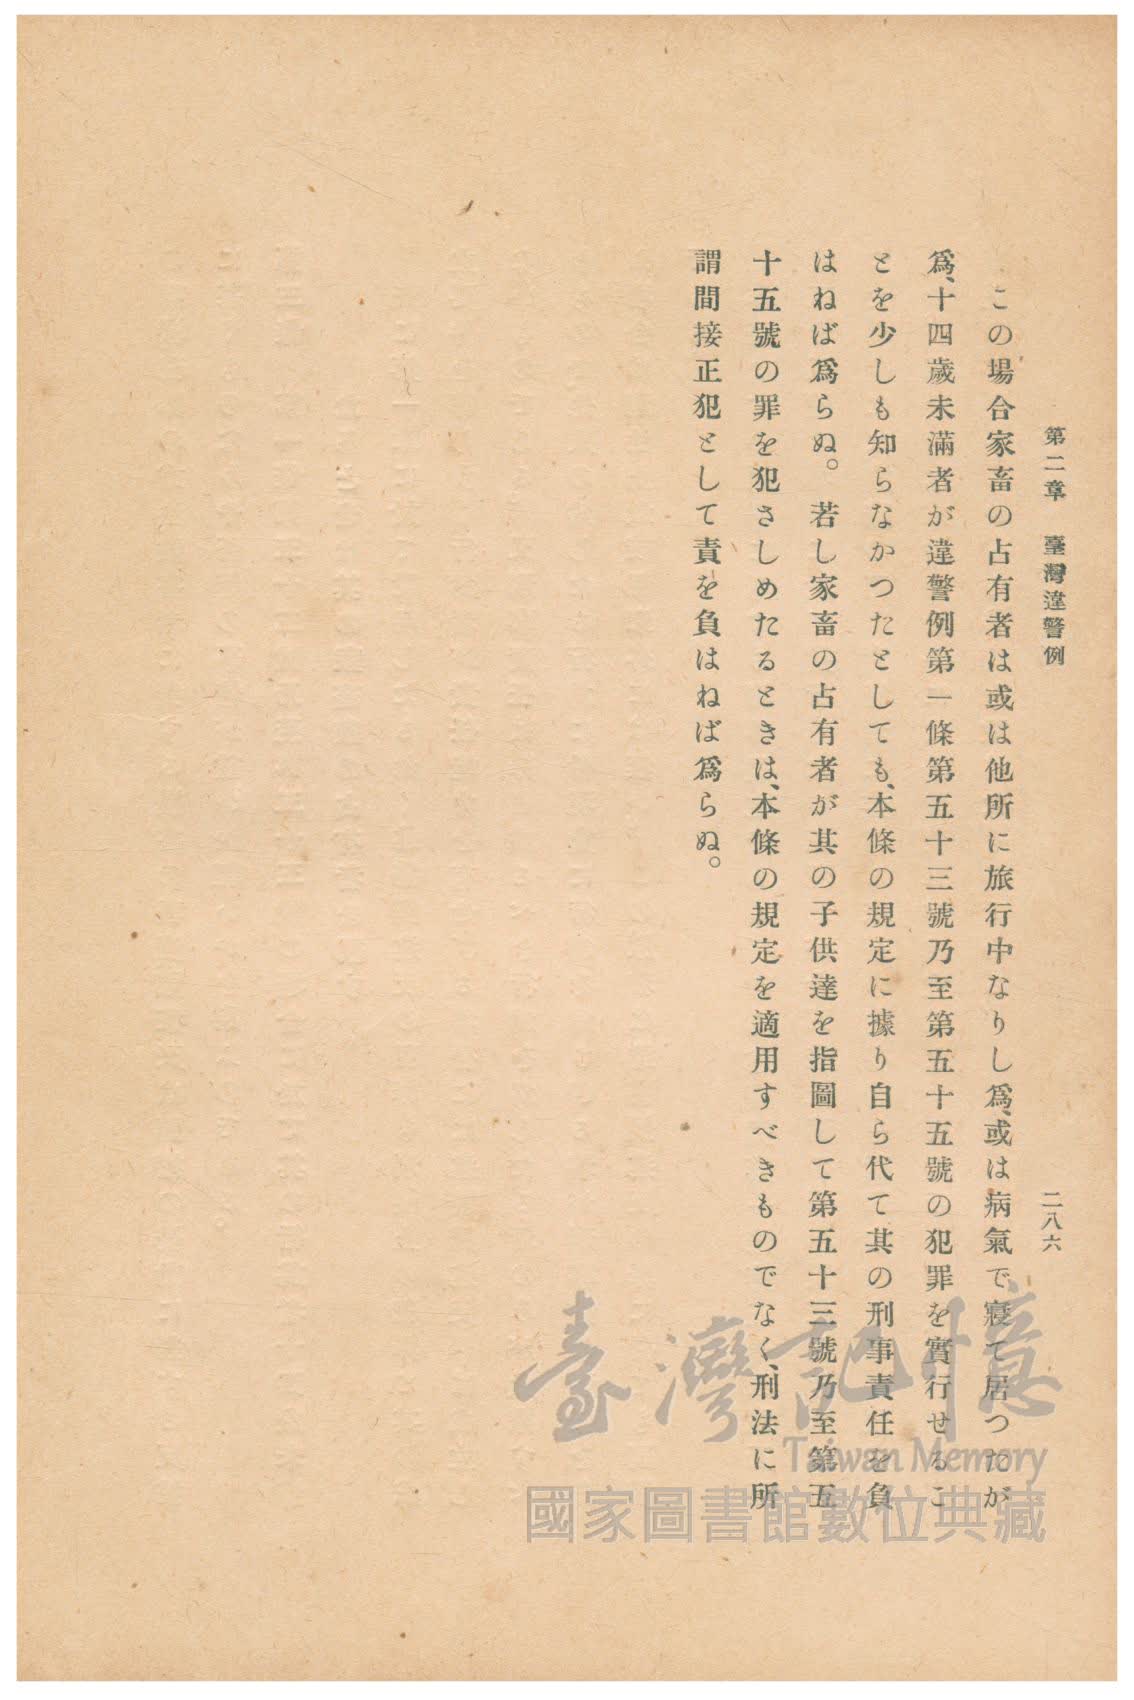 第二章　臺灣違警例　二八六
この場合家畜の占有者は或は他所に旅行中なりし爲、或は病氣で寢て居つたが
爲、十四歲未滿者が違警例第一條第五十三號乃至第五十五號の犯罪を實行せるこ
とを少しも知らなかつたとしても、本條の規定に據り自ら代て其の刑事責任を負
はねば爲らぬ。若し家畜の占有者が其の子供達を指圖して第五十三號乃至第五
十五號の罪を犯さしめたるときは、本條の規定を適用すべきものでなく、刑法に所
謂間接正犯として責を負はねば爲らぬ。
臺灣記憶
Taiwan Memory
國家圖書館數位典藏